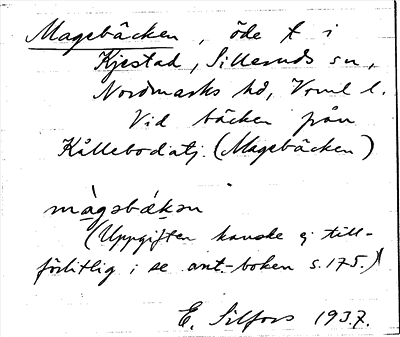 Magebäcken, öde t i
Kjestad, Silleruds sn,
Nordmarks hd, Vrml l.
Vid bäcken från
Kållebodatj. (Magebäcken)
màgəbækən
(Uppgiften kanske ej till-
förlitlig; se ant.-boken s. 175.)
E. Silfors 1937.